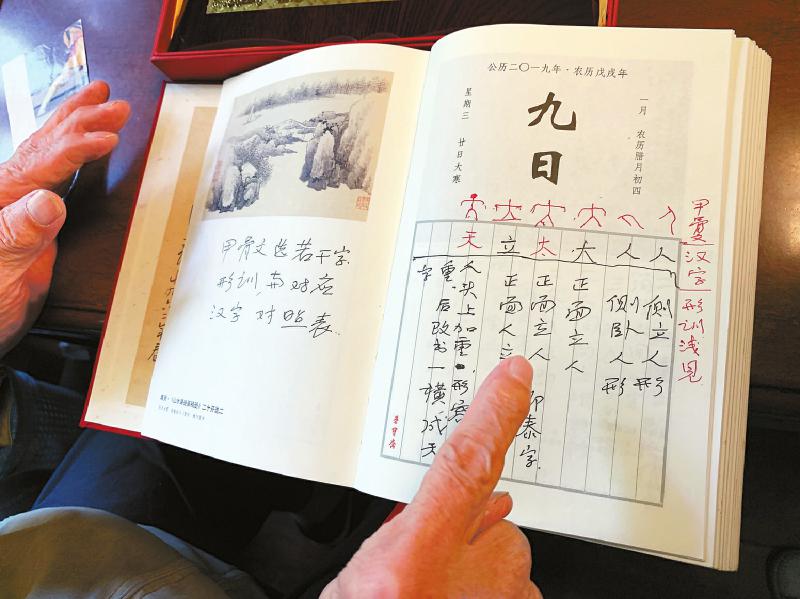 甲骨文选若干字
形训,与对应
汉字对照表.
公历二〇一九年·农历戊戌年
一月 农历腊月初四
九日
星期三 廿日大寒
甲骨汉字形训浅见
人 侧立人形
人 侧卧人形
大 正面立人
太 正面立人 即泰字.
立 正面人立
天 人头上加重
重,后改书一横成天
字
荣宝斋